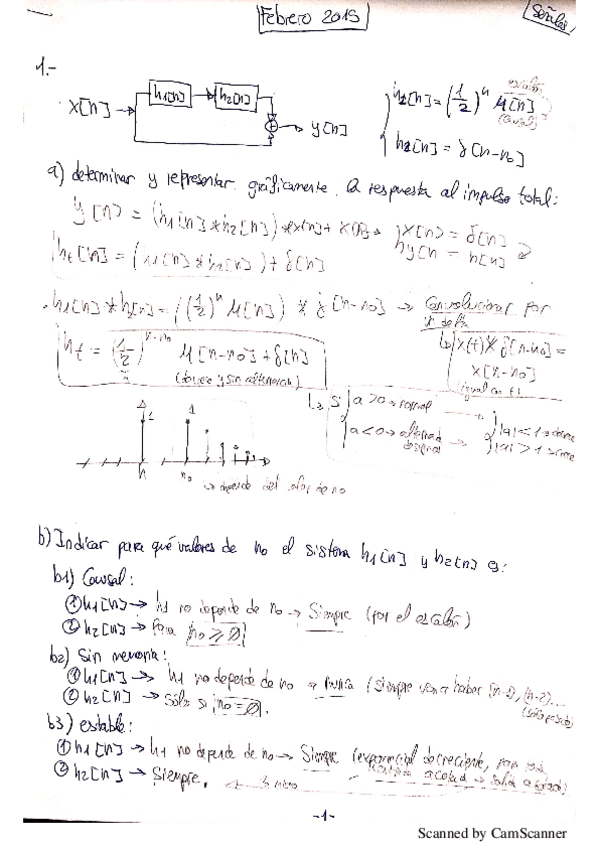 Febrero 2015
Señales
1.-
x[n] → h1[n] → h2[n] → y[n]
h1[n] = (1/2)^n μ[n]
escalón
(causal)
h2[n] = δ[n-n0]
a) determinar y representar gráficamente la respuesta al impulso total:
y[n] = (h1[n] * h2[n]) * x[n] + x[n] → x[n] = δ[n]
y[n] = h[n]
ht[n] = (h1[n] * h2[n]) + δ[n]
h1[n] * h2[n] = ((1/2)^n μ[n]) * δ[n-n0] → Convolucionar por
δ delta
x(t) * δ[n-n0] =
x[n-n0]
igual en t
ht = (1/2)^n-n0 μ[n-n0] + δ[n]
(decrece y sin alternancia)
Si a>0 → normal
a<0 → alternada
|a|<1 → decrece
|a|>1 → crece
1 1
n n0
→ depende del valor de n0
b) Indicar para qué valores de n0 el sistema h1[n] y h2[n] es:
b1) Causal:
① h1[n] → h1 no depende de n0 → Siempre (por el escalón)
② h2[n] → Para n0 ≥ 0
b2) Sin memoria:
① h1[n] → h1 no depende de n0 → nunca (siempre van a haber [n-1], [n-2]...
② h2[n] → Sólo si n0 = 0.
b3) estable:
① h1[n] → h1 no depende de n0 → Siempre (exponencial decreciente, para toda
entrada acotada → salida acotada)
② h2[n] → Siempre.
-1-
Scanned by CamScanner